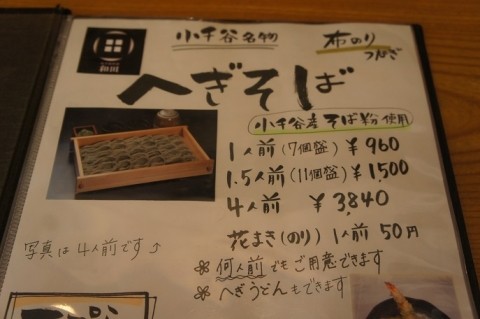 和田
小千谷名物
布のり
つなぎ
へぎそば
小千谷産そば粉使用
1人前(7個盛)¥960
1.5人前(11個盛)¥1,500
4人前 ¥3,840
花まき(のり)1人前50円
写真は4人前です
※何人前でもご用意できます
※へぎうどんもできます